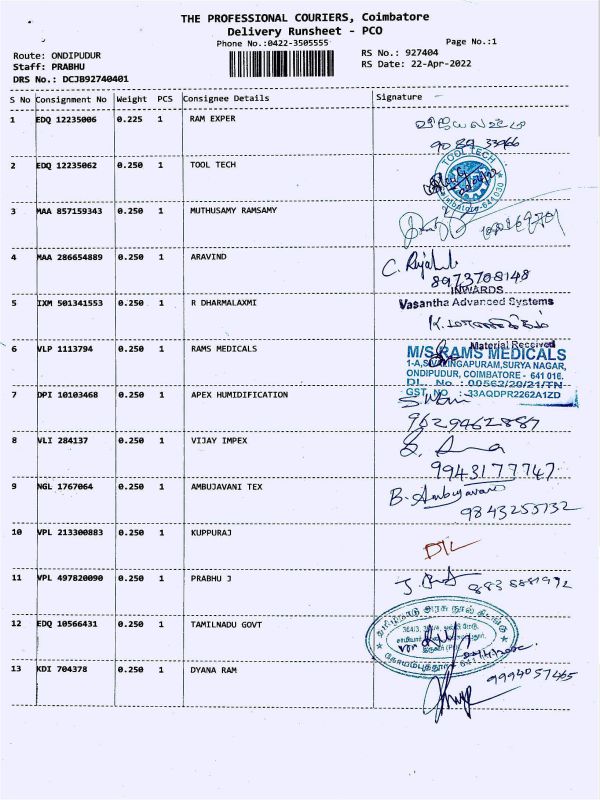 THE PROFESSIONAL COURIERS, Coimbatore
Delivery Runsheet - PCO
Phone No.:0422-3505555
Page No.:1
Route: ONDIPUDUR
RS No.: 927404
Staff: PRABHU
RS Date: 22-Apr-2022
DRS No.: DCJB92740401
S No Consignment No Weight PCS Consignee Details Signature
1 EDQ 12235006 0.225 1 RAM EXPER
2 EDQ 12235062 0.250 1 TOOL TECH
TOOL TECH
641030
3 MAA 857159343 0.250 1 MUTHUSAMY RAMSAMY
4 MAA 286654889 0.250 1 ARAVIND
8973708148
INWARDS
5 IXM 501341553 0.250 1 R DHARMALAXMI
Vasantha Advanced Systems
Material Received
6 VLP 1113794 0.250 1 RAMS MEDICALS
M/S RAMS MEDICALS
1-A, SURYA NAGAR,
ONDIPUDUR, COIMBATORE - 641 016.
DL. No : 00562/20/21/TN
GST NO : 33AQDPR2262A1ZD
7 DPI 10103468 0.250 1 APEX HUMIDIFICATION
9629462887
8 VLI 284137 0.250 1 VIJAY IMPEX
9943177747
9 NGL 1767064 0.250 1 AMBUJAVANI TEX
B. Ambujavani
9843255732
10 VPL 213300883 0.250 1 KUPPURAJ
DTL
11 VPL 497820090 0.250 1 PRABHU J
12 EDQ 10566431 0.250 1 TAMILNADU GOVT
13 KDI 704378 0.250 1 DYANA RAM
9994057465